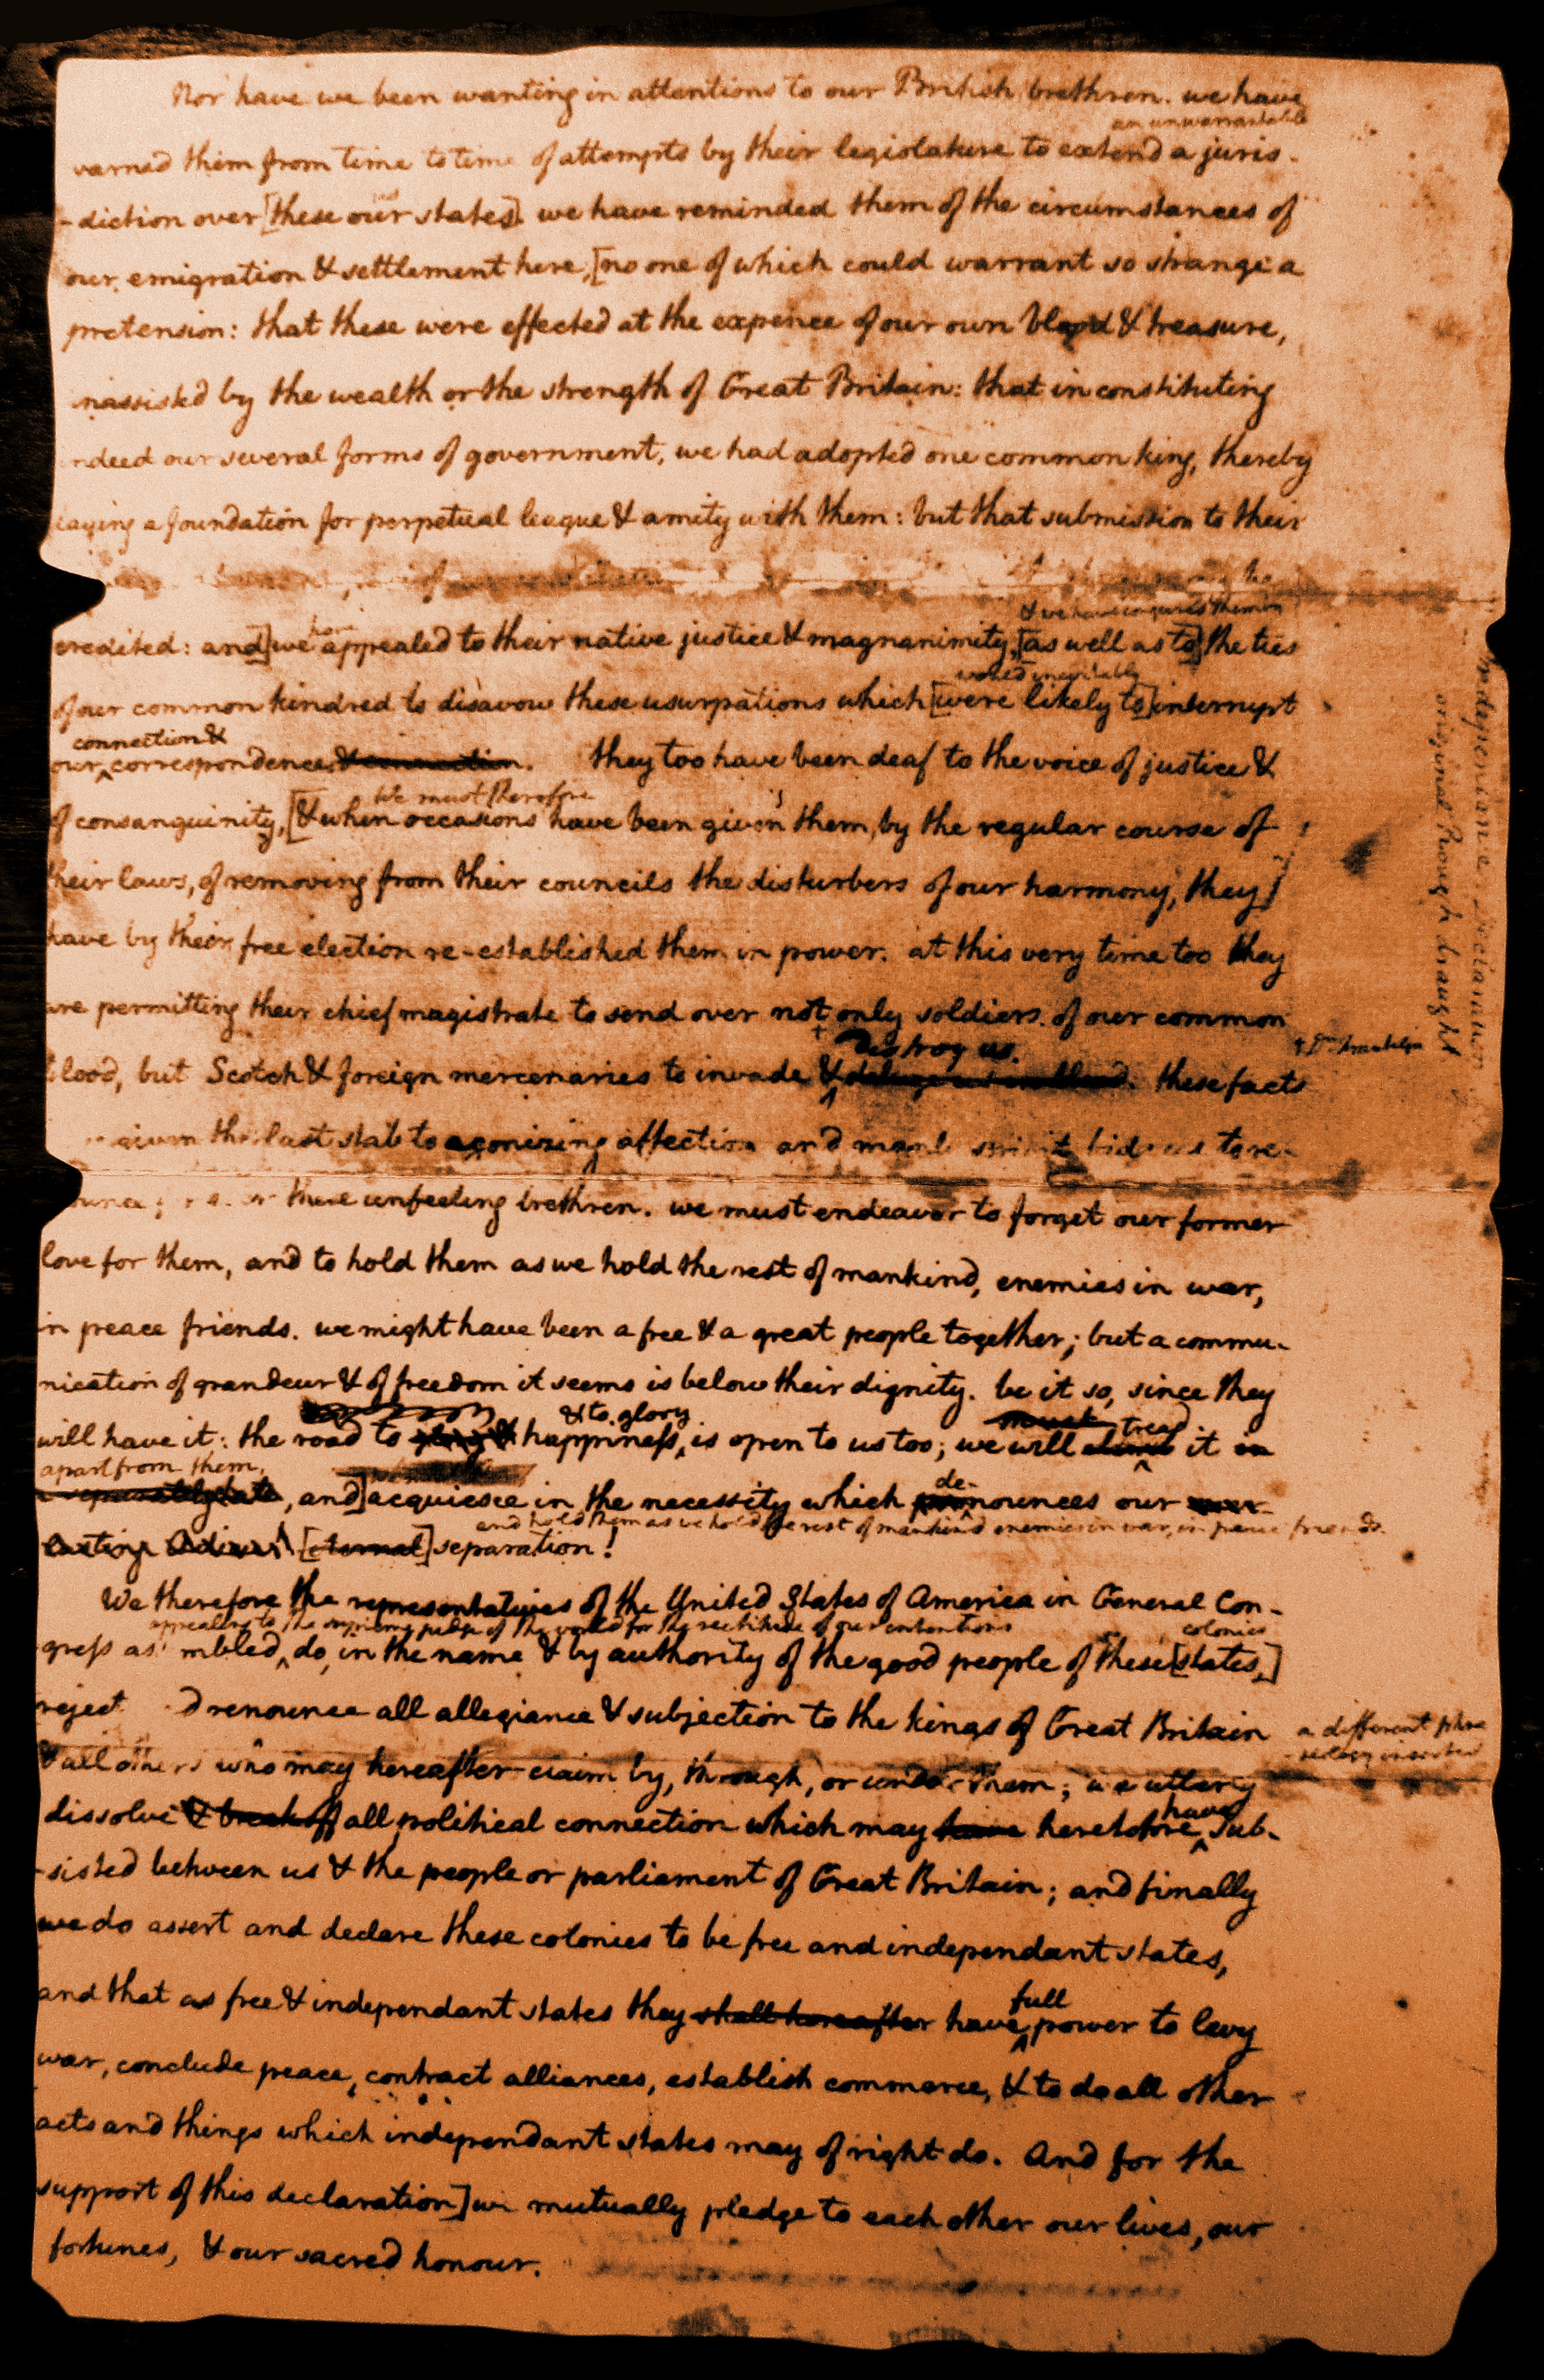 Nor have we been wanting in attentions to our British brethren. we have
an unwarrantable
warned them from time to time of attempts by their legislature to extend a juris-
-diction over [these our states]. we have reminded them of the circumstances of
our emigration & settlement here, [no one of which could warrant so strange a
pretension: that these were effected at the expence of our own blood & treasure,
unassisted by the wealth or the strength of Great Britain: that in constituting
indeed our several forms of government, we had adopted one common king, thereby
laying a foundation for perpetual league & amity with them: but that submission to their
& we have conjured them by
credited: and] we have appealed to their native justice & magnanimity, [as well as to] the ties
would inevitably
of our common kindred to disavow these usurpations which [were likely to] interrupt
connection &
our correspondence & connection. they too have been deaf to the voice of justice &
We must therefore
of consanguinity, [& when occasions have been given them, by the regular course of
their laws, of removing from their councils the disturbers of our harmony, they
have by their free election re-established them in power. at this very time too they
are permitting their chief magistrate to send over not only soldiers of our common
destroy us. + Dr. Franklin
blood, but Scotch & foreign mercenaries to invade & deluge us in blood. these facts
given the last stab to agonizing affection and manly spirit bids us to re-
nounce these unfeeling brethren. we must endeavor to forget our former
love for them, and to hold them as we hold the rest of mankind, enemies in war,
in peace friends. we might have been a free & a great people together; but a commu-
nication of grandeur & of freedom it seems is below their dignity. be it so, since they
& to glory must tread
will have it: the road to glory & happiness, is open to us too; we will climb it in
apart from them,
a separately state, and] acquiesce in the necessity which pronounces our ever-
de-
and hold them as we hold the rest of mankind enemies in war, in peace friends.
lasting Adieu! [eternal] separation!
We therefore the representatives of the United States of America in General Con-
appealing to the supreme judge of the world for the rectitude of our intentions colonies
gress assembled, do, in the name & by authority of the good people of these [states,]
reject and renounce all allegiance & subjection to the kings of Great Britain
a different phra
-seology inserted
& all others who may hereafter claim by, through, or under them; we utterly
have
dissolve & break off all political connection which may have heretofore sub-
-sisted between us & the people or parliament of Great Britain; and finally
we do assert and declare these colonies to be free and independant states,
full
and that as free & independant states they shall hereafter have power to levy
war, conclude peace, contract alliances, establish commerce, & to do all other
acts and things which independant states may of right do. And for the
support of this declaration] we mutually pledge to each other our lives, our
fortunes, & our sacred honour.
Independance Declaration
original Rough draught